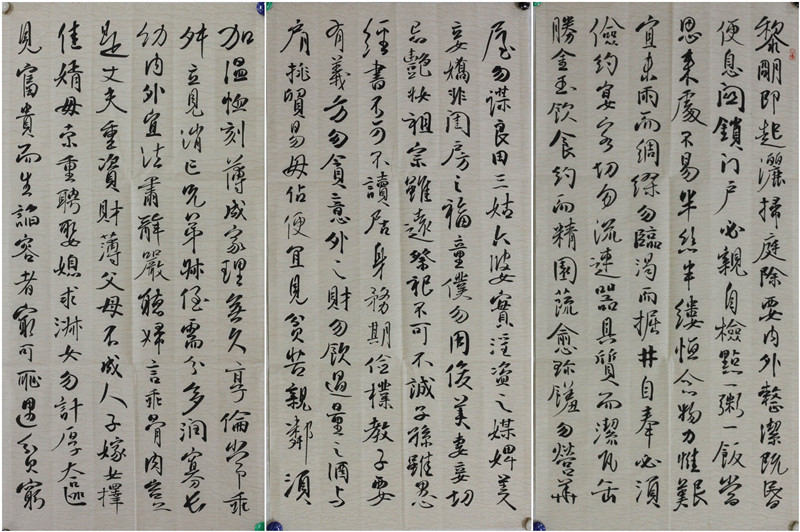 黎明即起灑掃庭除要内外整潔既昏
便息関鎖门户必親自檢點一粥一飯當
思来處不易半丝半缕恒念物力惟艱
宜未雨而綢缪勿臨渴而掘井自奉必須
儉约宴客切勿流連器具質而潔瓦缶
勝金玉飲食约而精園蔬愈珍馐勿營華
屋勿谋良田三姑六婆實淫盗之媒婢美
妾嬌非闺房之福童僕勿用俊美妻妾切
忌艷妆祖宗雖遠祭祀不可不誠子孫雖愚
經書不可不讀居身務期俭樸教子要
有義方勿貪意外之財勿飲過量之酒与
肩挑貿易毋佔便宜見貧苦親鄰須
加温恤刻薄成家理無久享倫常乖
舛立見消亡兄弟叔侄需分多润寡长
幼内外宜法肅辭嚴聴婦言乖骨肉豈
是丈夫重資財薄父母不成人子嫁女擇
佳婿毋索重聘娶媳求淑女勿計厚奁
見富貴而生諂容者最可恥遇貧窮